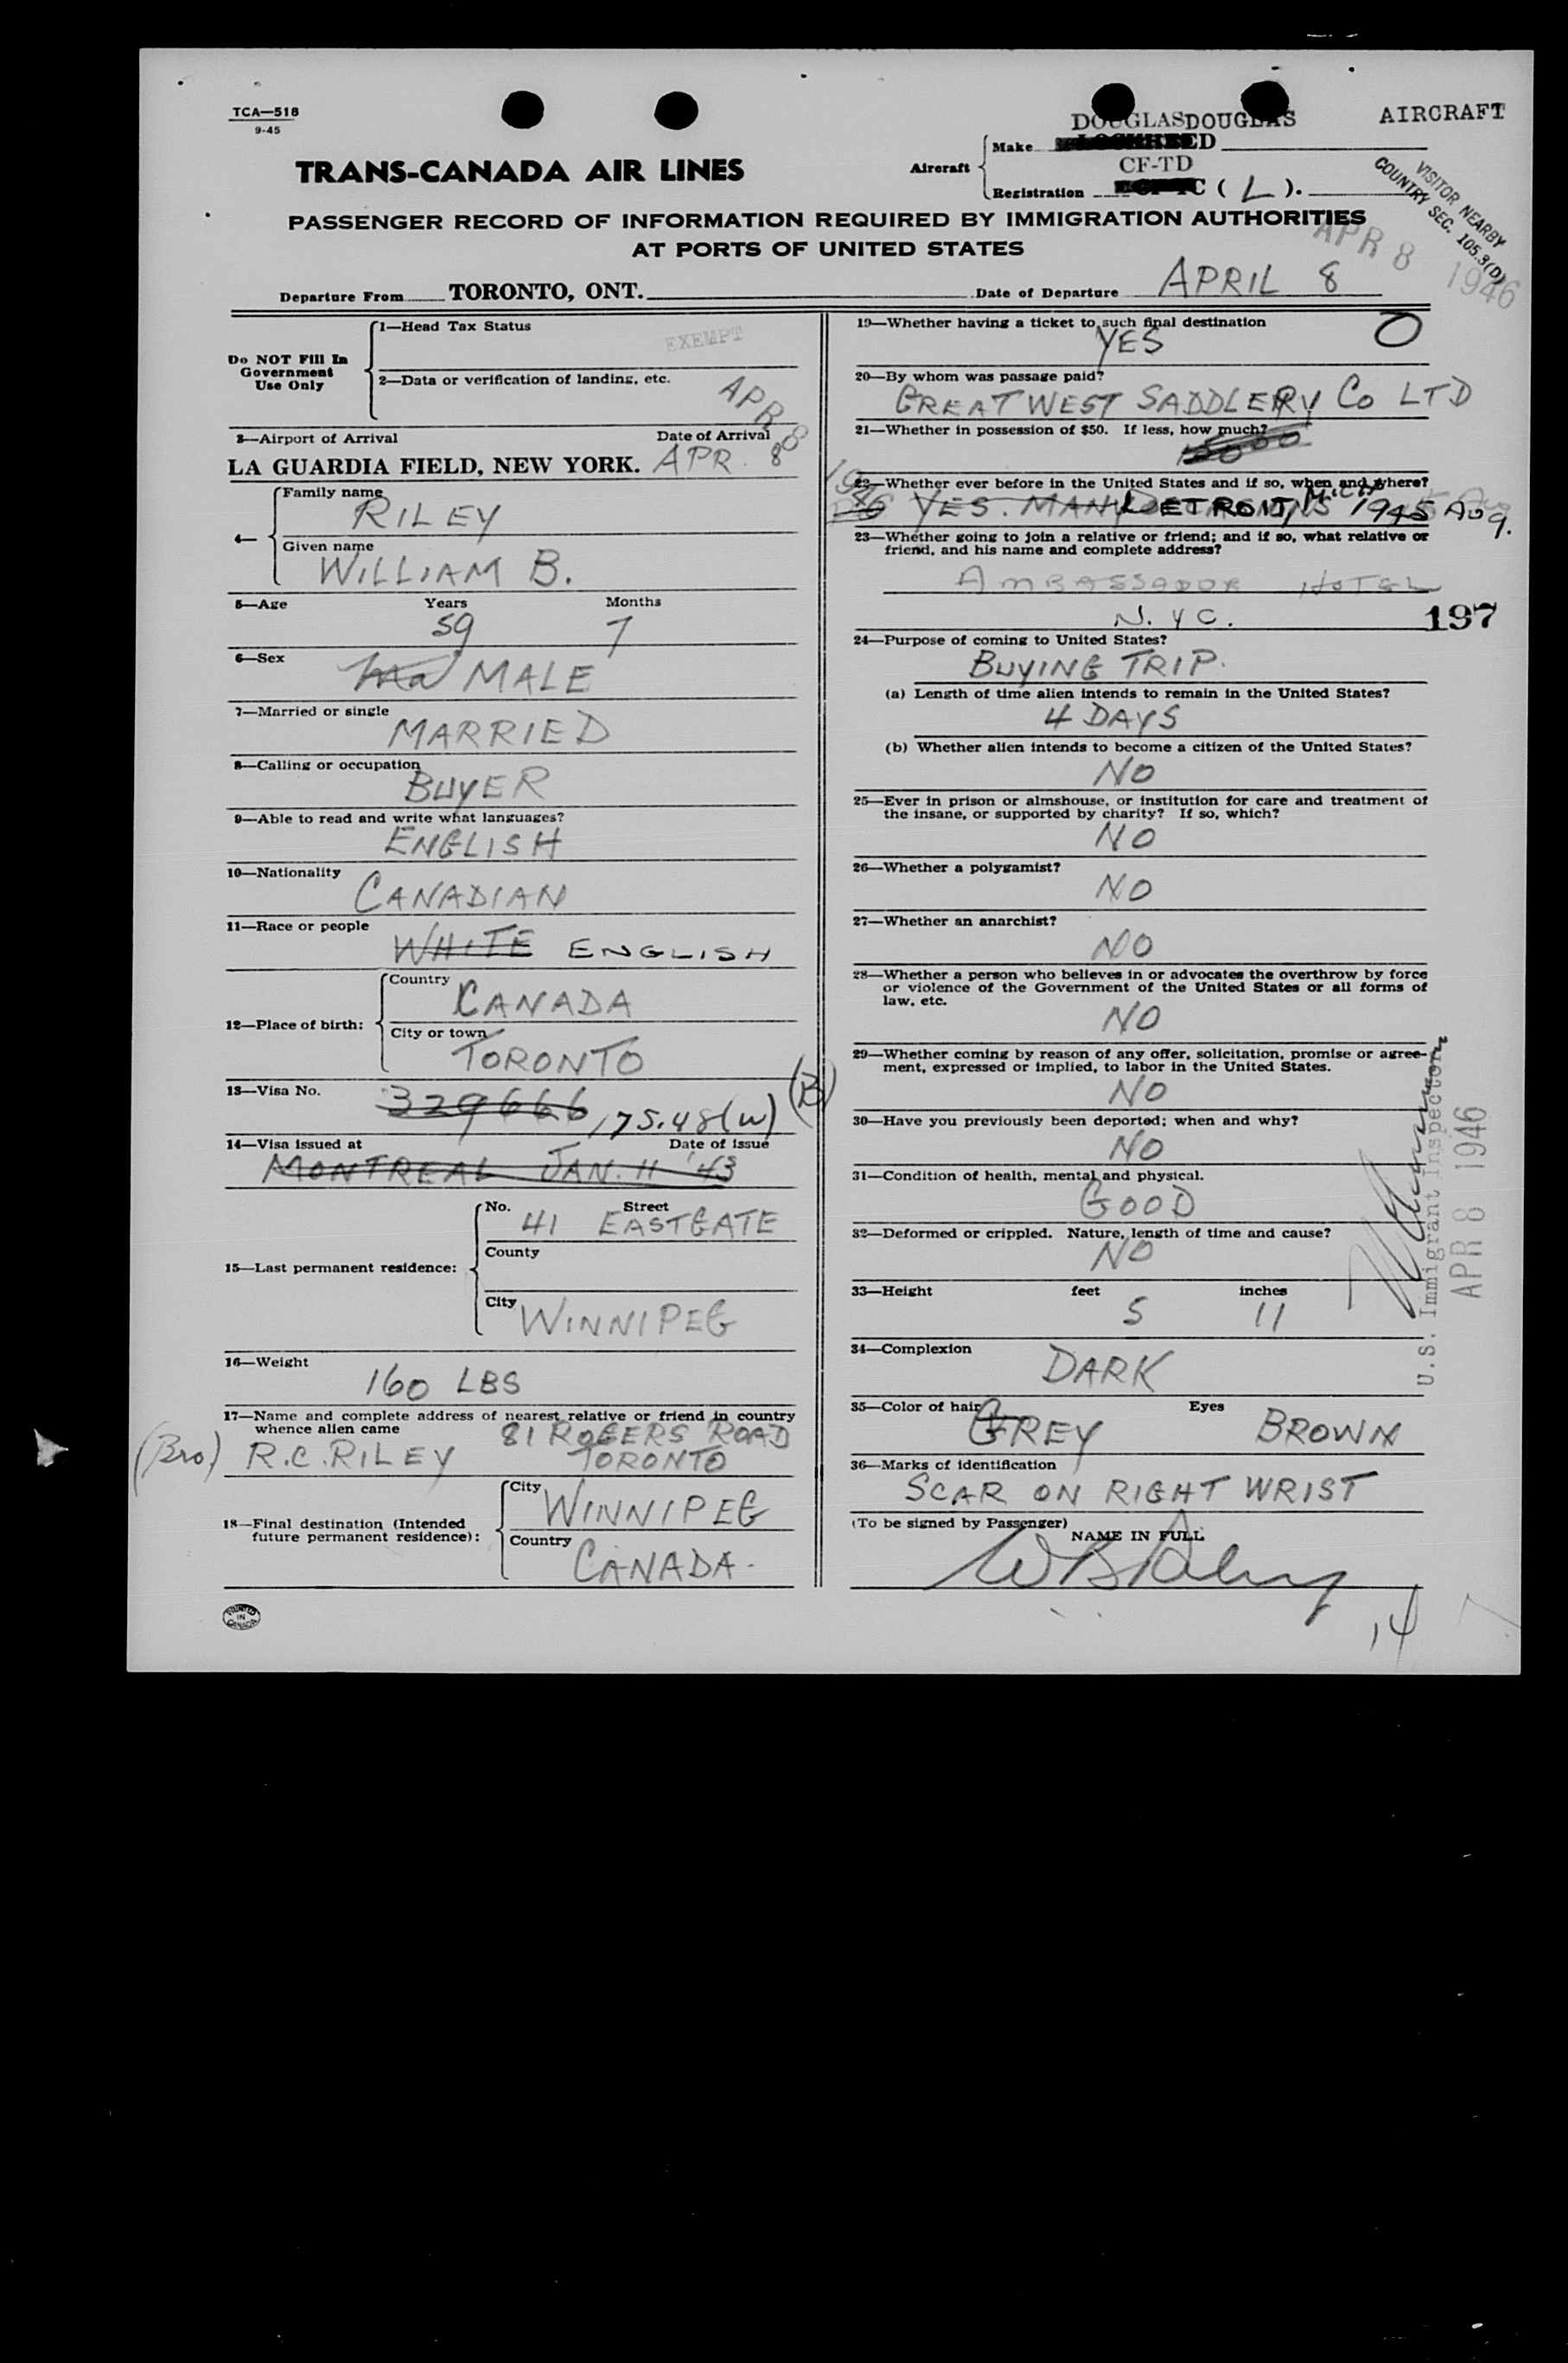 TCA—518
9-45
DOUGLASDOUGLAS AIRCRAFT
TRANS-CANADA AIR LINES
Aircraft
Make
CF-TD
Registration ( L ).
VISITOR NEARBY
COUNTRY SEC. 105.3(D)
PASSENGER RECORD OF INFORMATION REQUIRED BY IMMIGRATION AUTHORITIES
AT PORTS OF UNITED STATES
APR 8 1946
Departure From TORONTO, ONT. Date of Departure APRIL 8
Do NOT Fill In
Government
Use Only
1—Head Tax Status
EXEMPT
2—Data or verification of landing, etc.
APR 8 1946
3—Airport of Arrival Date of Arrival
LA GUARDIA FIELD, NEW YORK. APR. 8
4—
Family name
RILEY
Given name
WILLIAM B.
5—Age Years Months
59 7
6—Sex
Ma MALE
7—Married or single
MARRIED
8—Calling or occupation
BUYER
9—Able to read and write what languages?
ENGLISH
10—Nationality
CANADIAN
11—Race or people
WHITE ENGLISH
12—Place of birth:
Country
CANADA
City or town
TORONTO
13—Visa No.
329666 175.48(W) (B)
14—Visa issued at Date of issue
MONTREAL JAN. 11 '43
15—Last permanent residence:
No. Street
41 EASTGATE
County
City
WINNIPEG
16—Weight
160 LBS
17—Name and complete address of nearest relative or friend in country
whence alien came
81 ROGERS ROAD
(Bro) R.C. RILEY TORONTO
18—Final destination (Intended
future permanent residence):
City
WINNIPEG
Country
CANADA.
PRINTED
IN
CANADA
19—Whether having a ticket to such final destination
YES O
20—By whom was passage paid?
GREAT WEST SADDLERY CO LTD
21—Whether in possession of $50. If less, how much?
22—Whether ever before in the United States and if so, when and where?
YES. MANY DETROIT, MICH 1945 AUG.
23—Whether going to join a relative or friend; and if so, what relative or
friend, and his name and complete address?
AMBASSADOR HOTEL
N.Y.C. 197
24—Purpose of coming to United States?
BUYING TRIP.
(a) Length of time alien intends to remain in the United States?
4 DAYS
(b) Whether alien intends to become a citizen of the United States?
NO
25—Ever in prison or almshouse, or institution for care and treatment of
the insane, or supported by charity? If so, which?
NO
26—Whether a polygamist?
NO
27—Whether an anarchist?
NO
28—Whether a person who believes in or advocates the overthrow by force
or violence of the Government of the United States or all forms of
law, etc.
NO
29—Whether coming by reason of any offer, solicitation, promise or agree-
ment, expressed or implied, to labor in the United States.
NO
30—Have you previously been deported; when and why?
NO
31—Condition of health, mental and physical.
GOOD
32—Deformed or crippled. Nature, length of time and cause?
NO
33—Height feet inches
5 11
34—Complexion
DARK
35—Color of hair Eyes
GREY BROWN
36—Marks of identification
SCAR ON RIGHT WRIST
(To be signed by Passenger)
NAME IN FULL
W B Riley
14
U.S. Immigrant Inspector
APR 8 1946